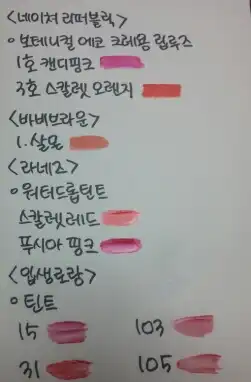 <네이처 리퍼블릭>
○ 보태니컬 에코 크레용 립루즈
1호 캔디핑크
3호 스칼렛 오렌지
<바비브라운>
1. 살몬
<라네즈>
○ 워터드롭틴트
스칼렛레드
푸시아 핑크
<입생로랑>
○ 틴트
15 103
31 105